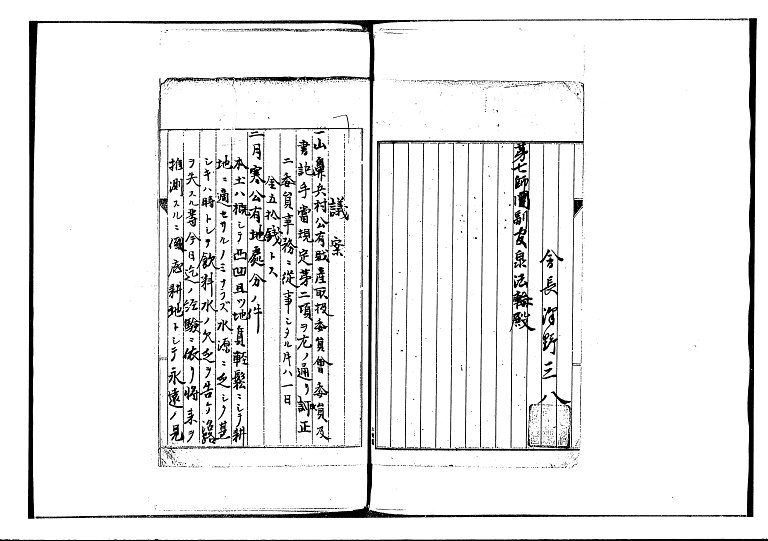 会長 澤野三八
第七師團副官泉法輪殿
議案
一山鼻兵村公有財産取扱委員會委員及
書記手當規定第二項ヲ左ノ通リ訂正
二委員事務ニ從事シタル片ハ一日
金五拾錢トス
二月寒公有地處分ノ件
本土ハ概シテ凸凹且ツ地質輕鬆ニシテ耕
地ニ適セサルノミナラズ水源ニ乏シク甚
シキハ時トシテ飲料水ノ欠乏ヲ告ケ
ヲ失スル等今日迄ノ経験ニ依リ将来ヲ
推測スルニ到底耕地トシテ永遠ノ見